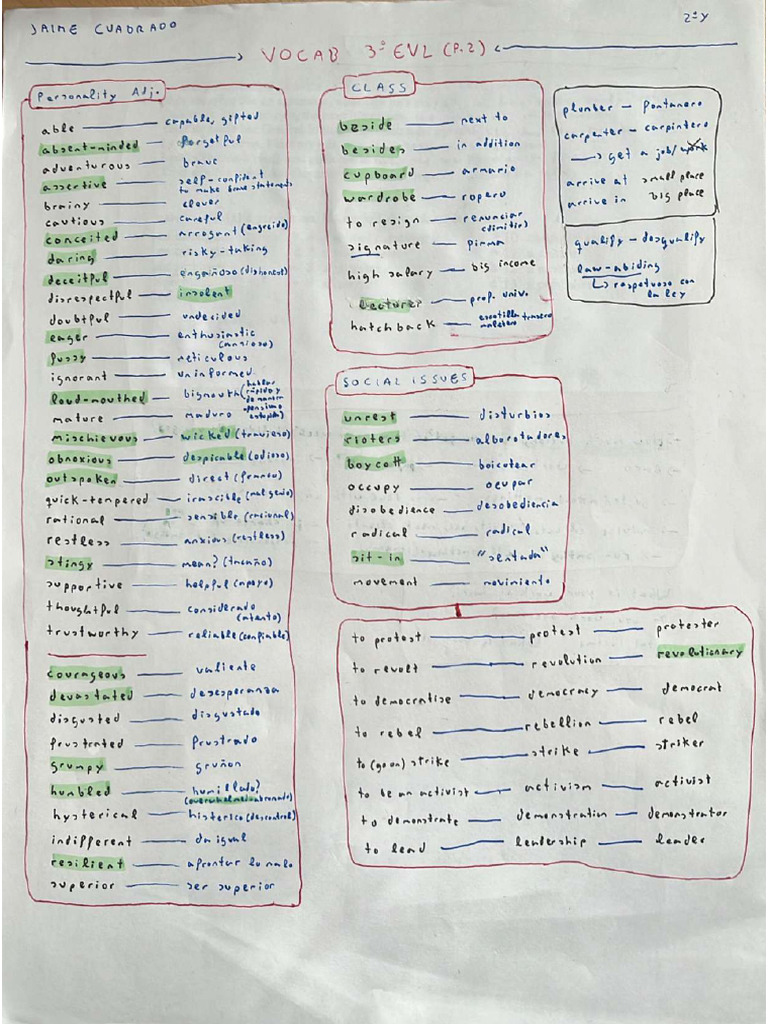 JAIME CUADRADO
2ºY
VOCAB 3ª EVL (P.2)
Personality Adj.
able — capable, gifted
absent-minded — forgetful
adventurous — brave
assertive — self-confident to make brave statements
brainy — clever
cautious — careful
conceited — arrogant (engreido)
daring — risky-taking
deceitful — engañoso (dishonest)
disrespectful — insolent
doubtful — undecided
eager — enthusiastic (ansioso)
fussy — meticulous
ignorant — uninformed
loud-mouthed — bigmouth (hablar rápido y de manera
mature — maduro
mischievous — wicked (travieso)
obnoxious — despicable (odioso)
outspoken — direct (franco)
quick-tempered — irascible (mal genio)
rational — sensible (racional)
restless — anxious (restless)
stingy — mean? (tacaño)
supportive — helpful (apoyo)
thoughtful — considerado (atento)
trustworthy — reliable (confiable)
courageous — valiente
devastated — desesperanza
disgusted — disgustado
frustrated — frustrado
grumpy — gruñon
humbled — humillado?
hysterical — histerico (descontrol)
indifferent — da igual
resilient — afrontar lo malo
superior — ser superior
CLASS
beside — next to
besides — in addition
cupboard — armario
wardrobe — ropero
to resign — renunciar (dimitir)
signature — firma
high salary — big income
lecturer — prof. univ.
hatchback — escotilla trasera maletero
plumber — fontanero
carpenter — carpintero
→ get a job/work
arrive at small place
arrive in big place
qualify — desqualify
law-abiding
↳ respetuoso con la ley
SOCIAL ISSUES
unrest — disturbios
rioters — alborotadores
boycott — boicotear
occupy — ocupar
disobedience — desobediencia
radical — radical
sit-in — "sentada"
movement — movimiento
to protest — protest — protester
to revolt — revolution — revolutionary
to democratise — democracy — democrat
to rebel — rebellion — rebel
to (go on) strike — strike — striker
to be an activist — activism — activist
to demonstrate — demonstration — demonstrator
to lead — leadership — leader